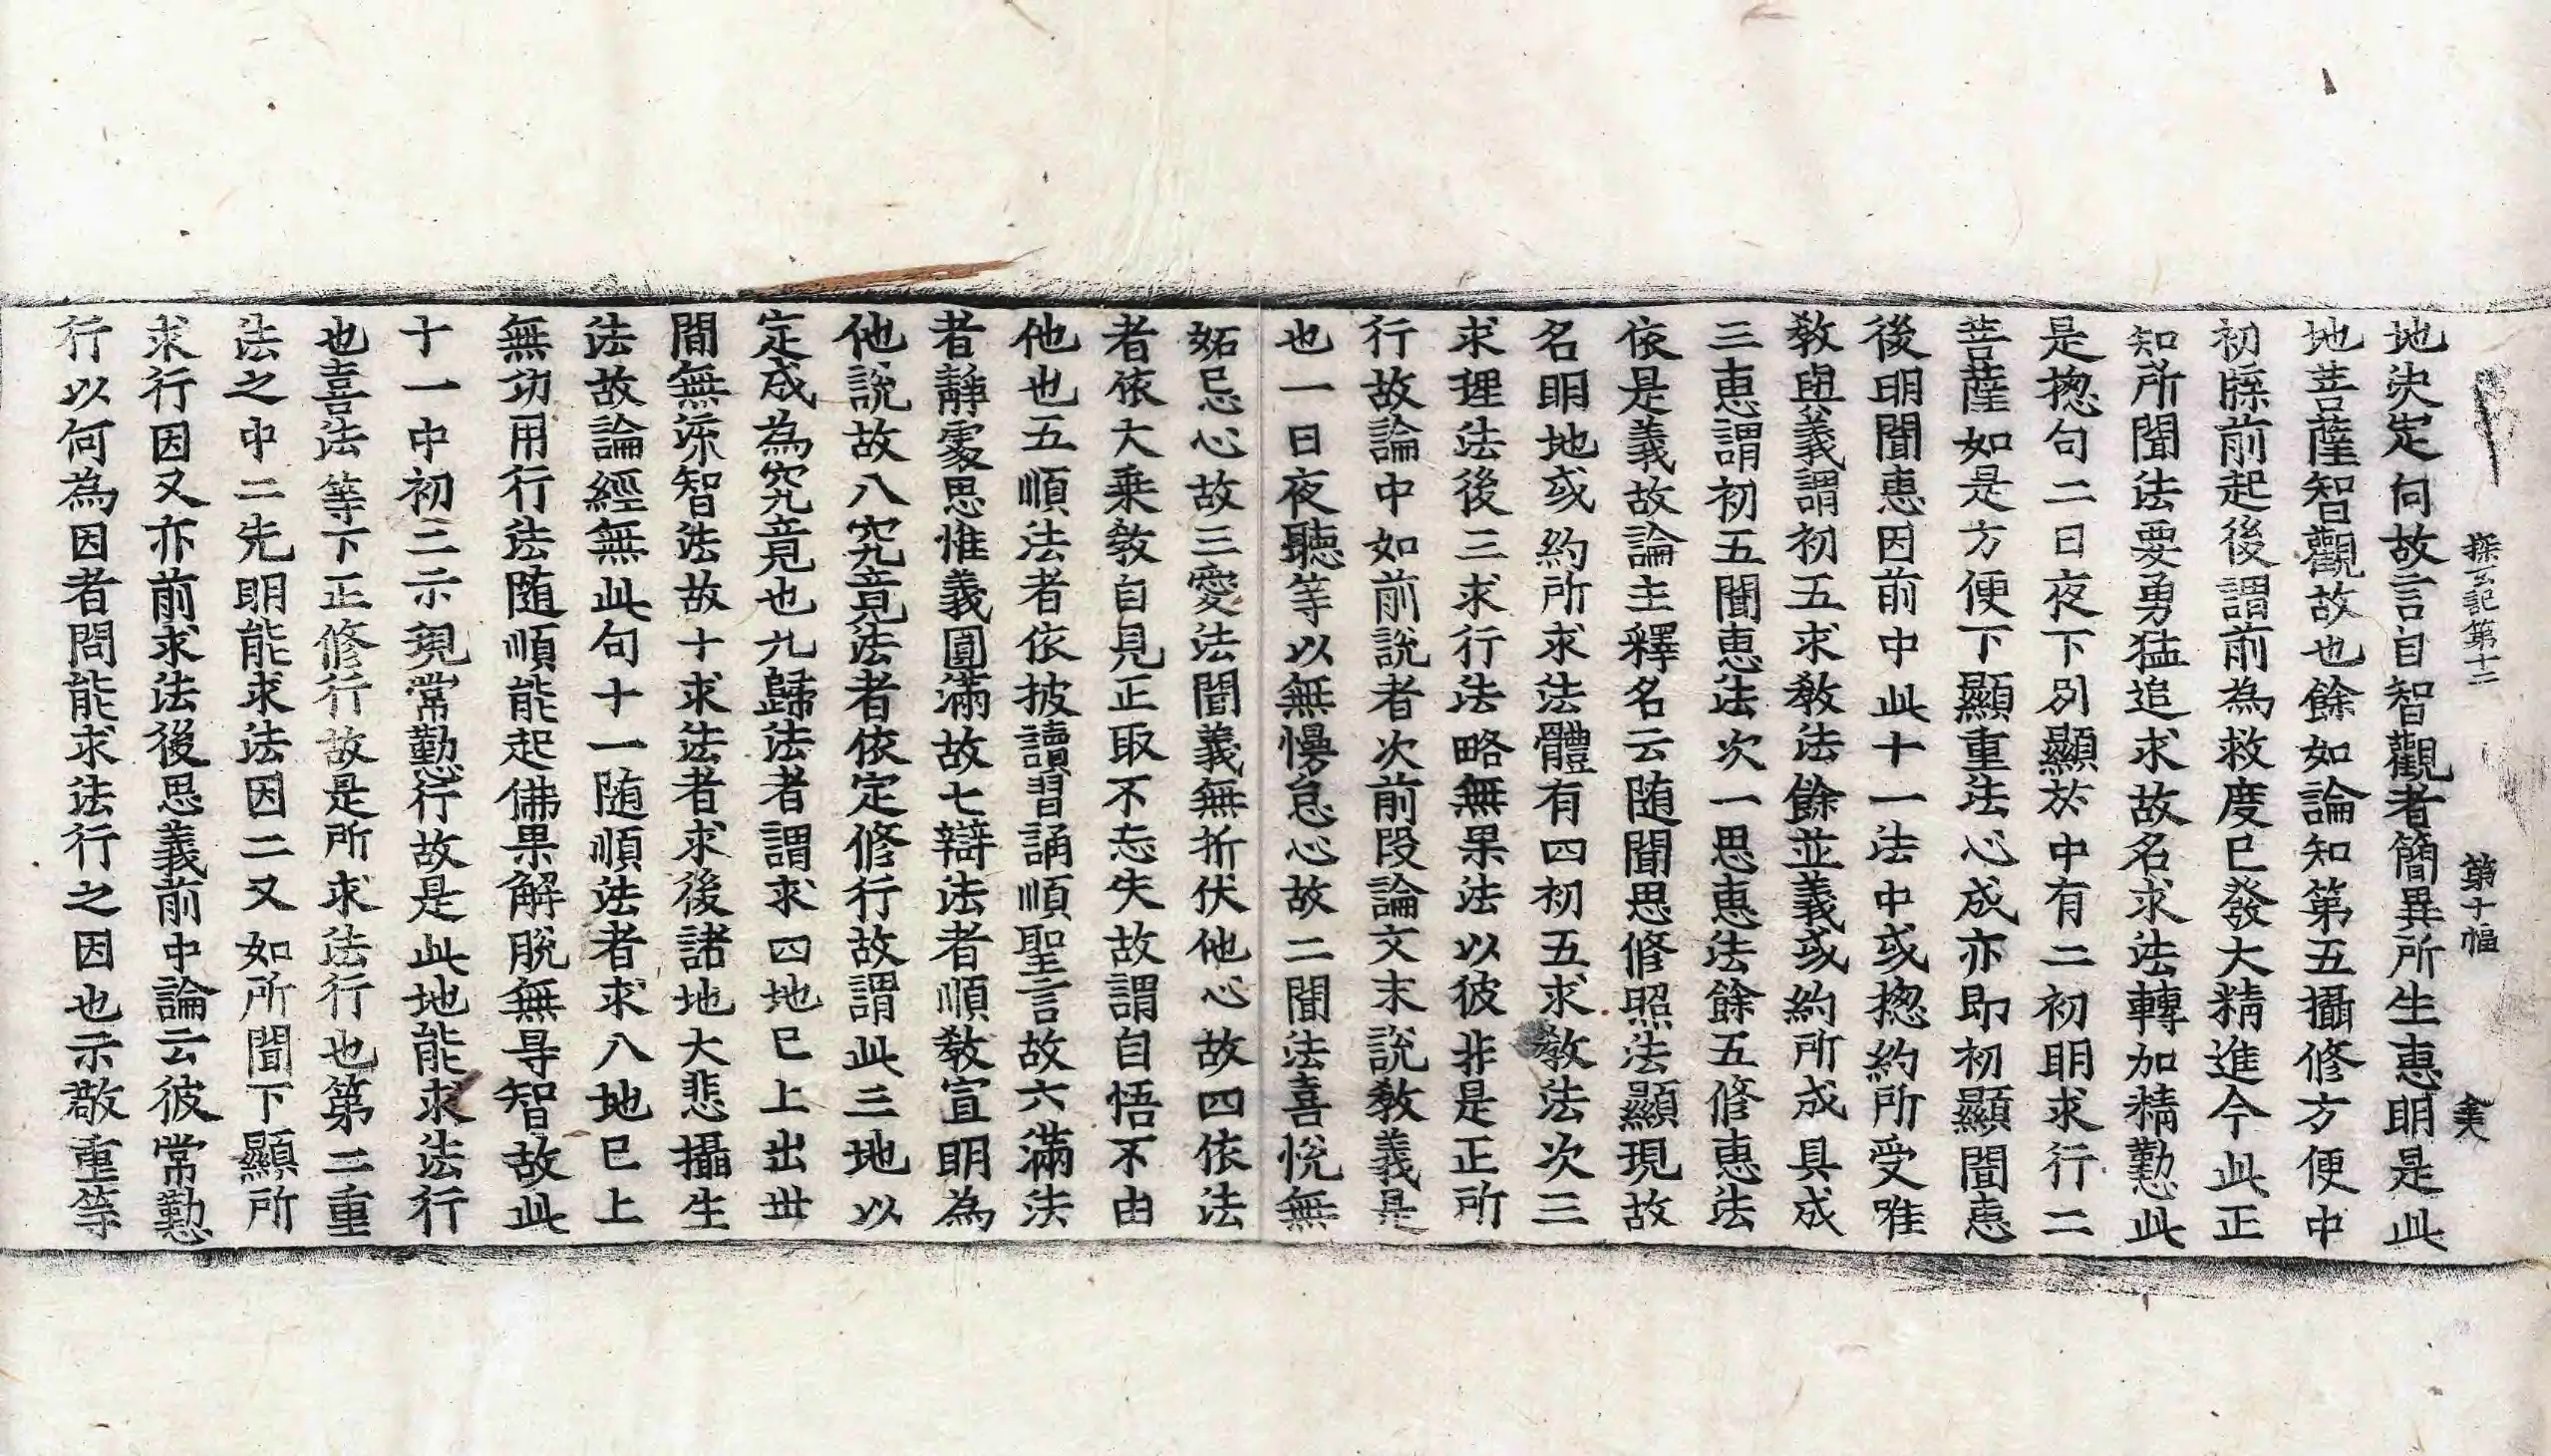 探玄記第十二 第十幅 美
地決定何故言自智觀者簡異所生惠明是此
地菩薩智觀故也餘如論知第五攝修方便中
初牒前起後謂前為救度已發大精進今此正
知所聞法要勇猛追求故名求法轉加精勤此
是揔句二日夜下別顯於中有二初明求行二
菩薩如是方便下顯重法心成亦即初顯聞惠
後明聞惠因前中此十一法中或揔約所受唯
教與義謂初五求教法餘並義或約所成具成
三惠謂初五聞惠法次一思惠法餘五修惠法
依是義故論主釋名云随聞思修照法顯現故
名明地或約所求法體有四初五求教法次三
求理法後三求行法略無果法以彼非是正所
行故論中如前說者次前段論文末說教義是
也一日夜聽等以無慢怠心故二聞法喜悅無
妬忌心故三愛法聞義無折伏他心故四依法
者依大乘教自見正取不忘失故謂自悟不由
他也五順法者依披讀習誦順聖言故六滿法
者靜處思惟義圓滿故七辯法者順教宣明為
他說故八究竟法者依定修行故謂此三地以
定成為究竟也九歸法者謂求四地已上出世
間無漈智法故十求法者求後諸地大悲攝生
法故論經無此句十一随順法者求八地已上
無功用行法随順能起佛果解脫無㝵智故此
十一中初二示現常勤行故是此地能求法行
也喜法等下正修行故是所求法行也第二重
法之中二先明能求法因二又如所聞下顯所
求行因又亦前求法後思義前中論云彼常勤
行以何為因者問能求法行之因也示敬重等